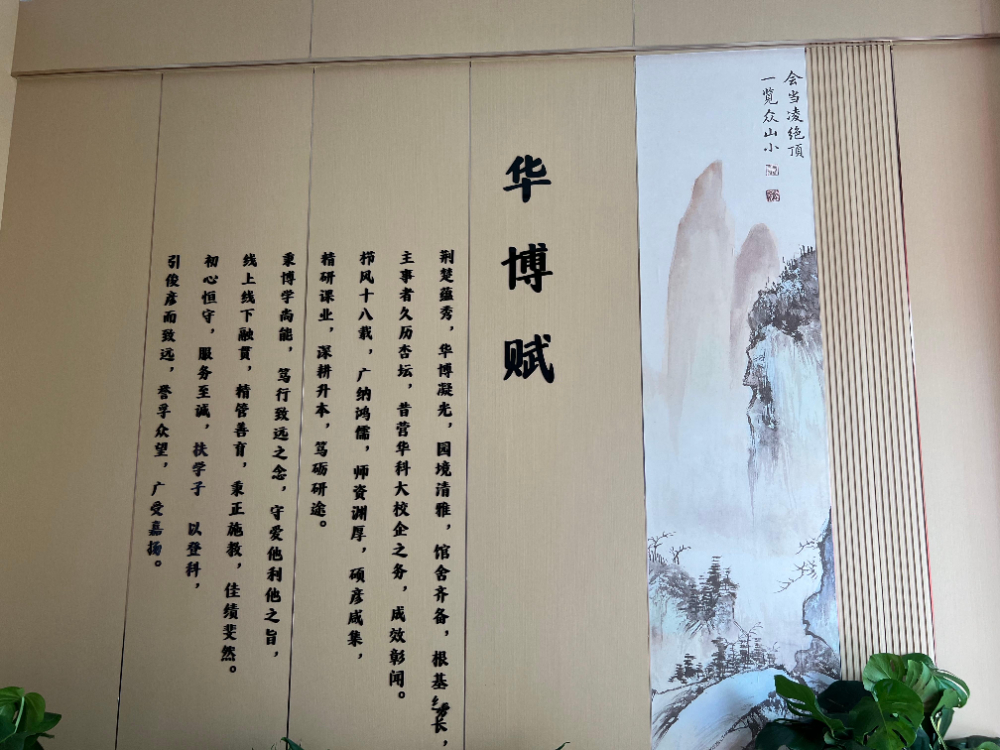 会当凌绝顶
一览众山小
华博赋
荆楚蕴秀，华博凝光，园境清雅，馆舍齐备，根基绵长，
主事者久历杏坛，昔营华科大校企之务，成效彰闻。
栉风十八载，广纳鸿儒，师资渊厚，硕彦咸集，
精研课业，深耕升本，笃砺研途。
秉博学尚能，笃行致远之念，守爱他利他之旨，
线上线下融貫，精管善育，秉正施教，佳绩斐然。
初心恒守，服务至诚，扶学子 以登科，
引俊彦而致远，誉孚众望，广受嘉扬。